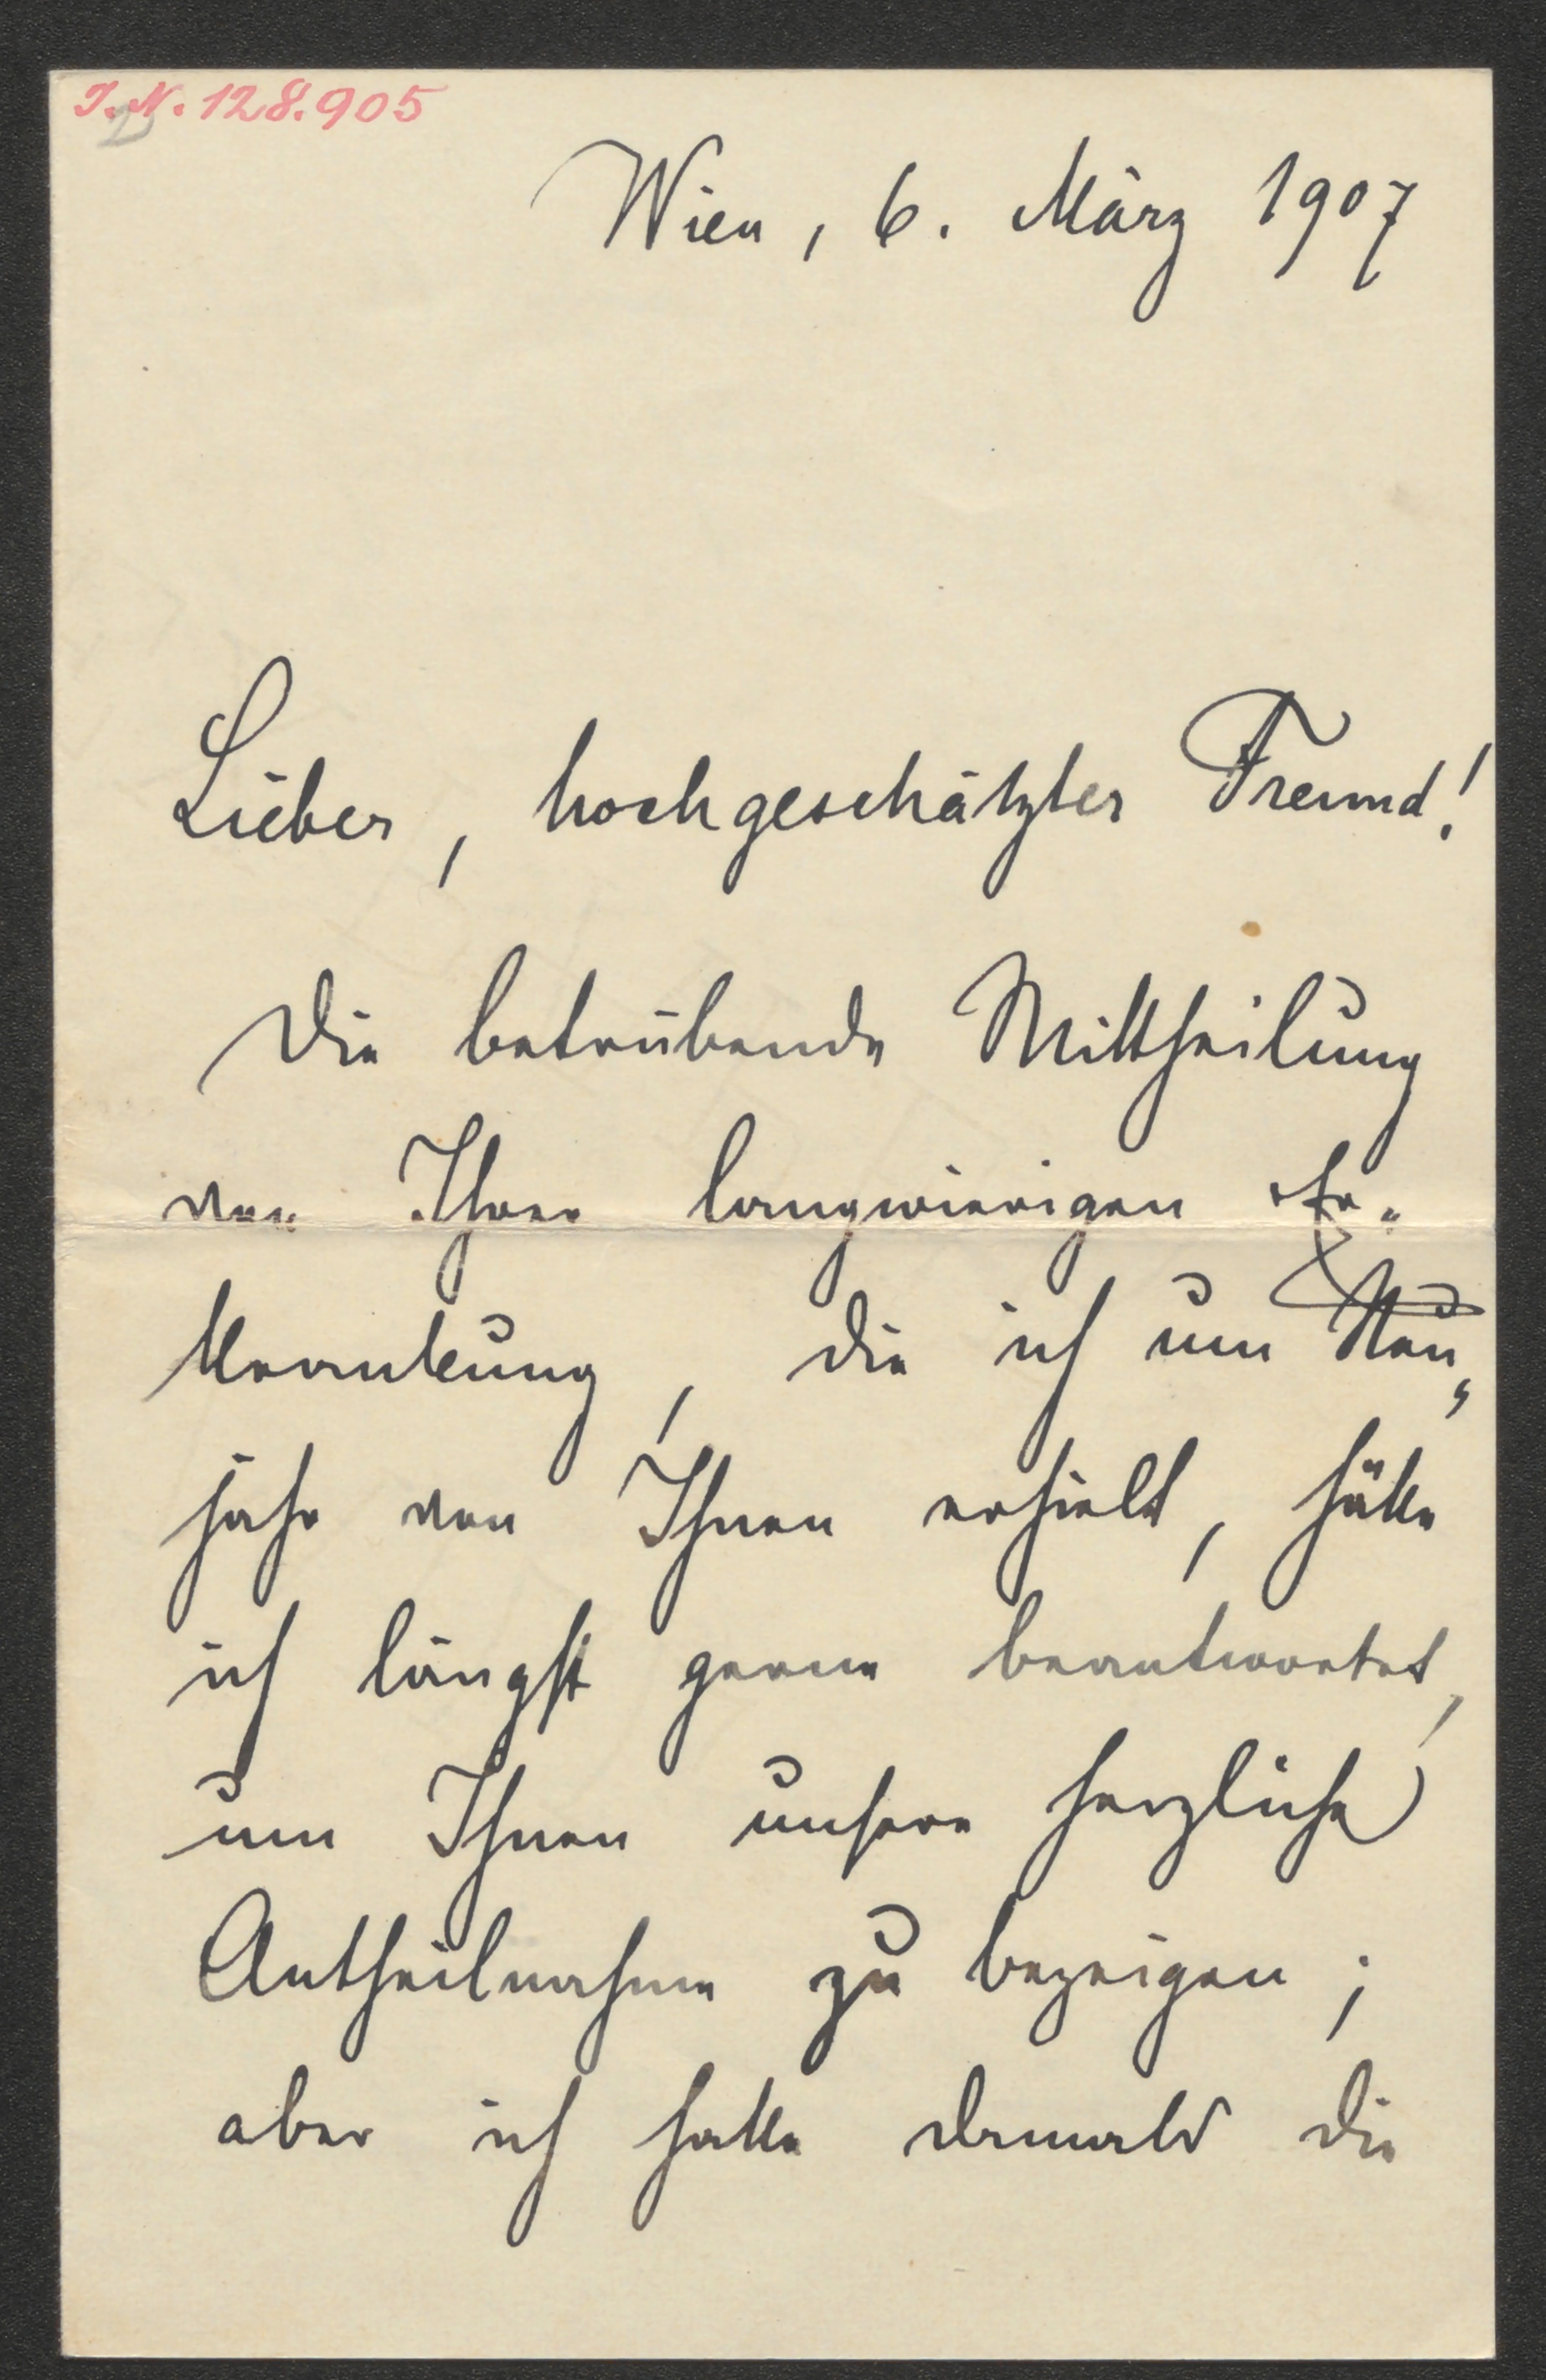 I.N. 128.905
Wien, 6. März 1907
Lieber, hochgeschätzter Freund!
Die betrübende Mittheilung
von Ihrer langwierigen Er-
krankung, die ich um Neu-
jahr von Ihnen erhielt, hätte
ich längst gerne beantwortet,
um Ihnen unsere herzliche
Antheilnahme zu bezeigen;
aber ich hatte damals die